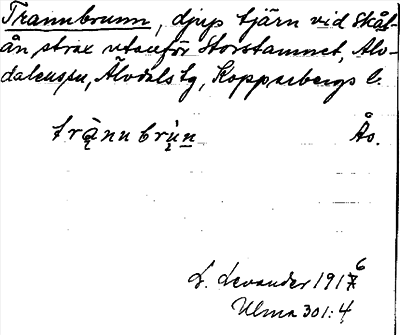 Trannbrunn, djup tjärn vid Skål-
ån strax utanför Storstamnet, Älv-
dalens sn, Älvdals tg, Kopparbergs l.
trånnbrùn Åo.
L. Levander 1916
Ulma 301:4